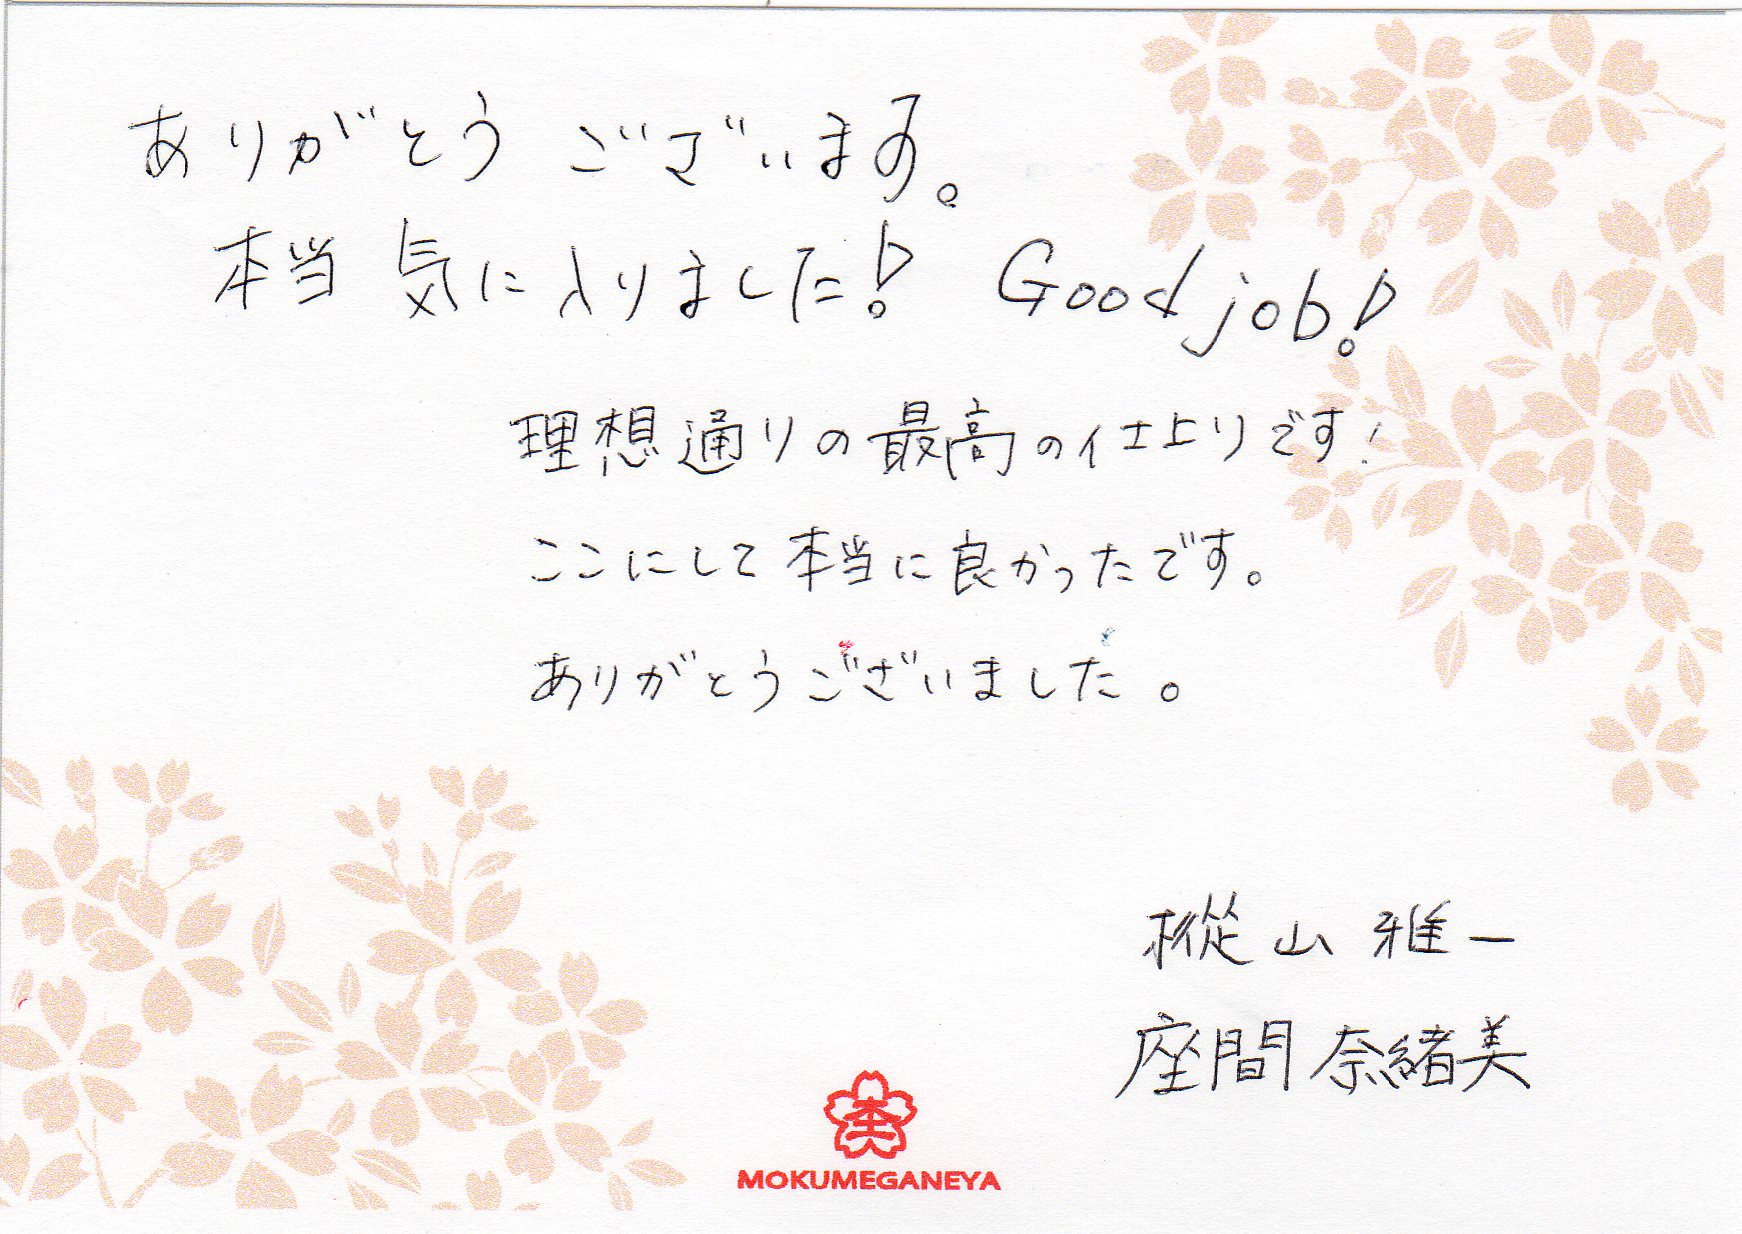 ありがとう ございます。
本当 気に入りました! Good job!
理想通りの最高の仕上りです!
ここにして本当に良かったです。
ありがとうございました。
樅山 雅一
座間 奈緒美
MOKUMEGANEYA